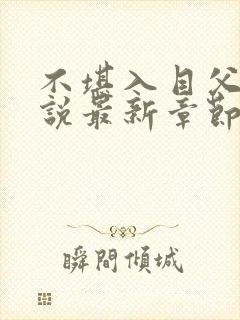 不堪入目父
說最新章節
瞬間傾城